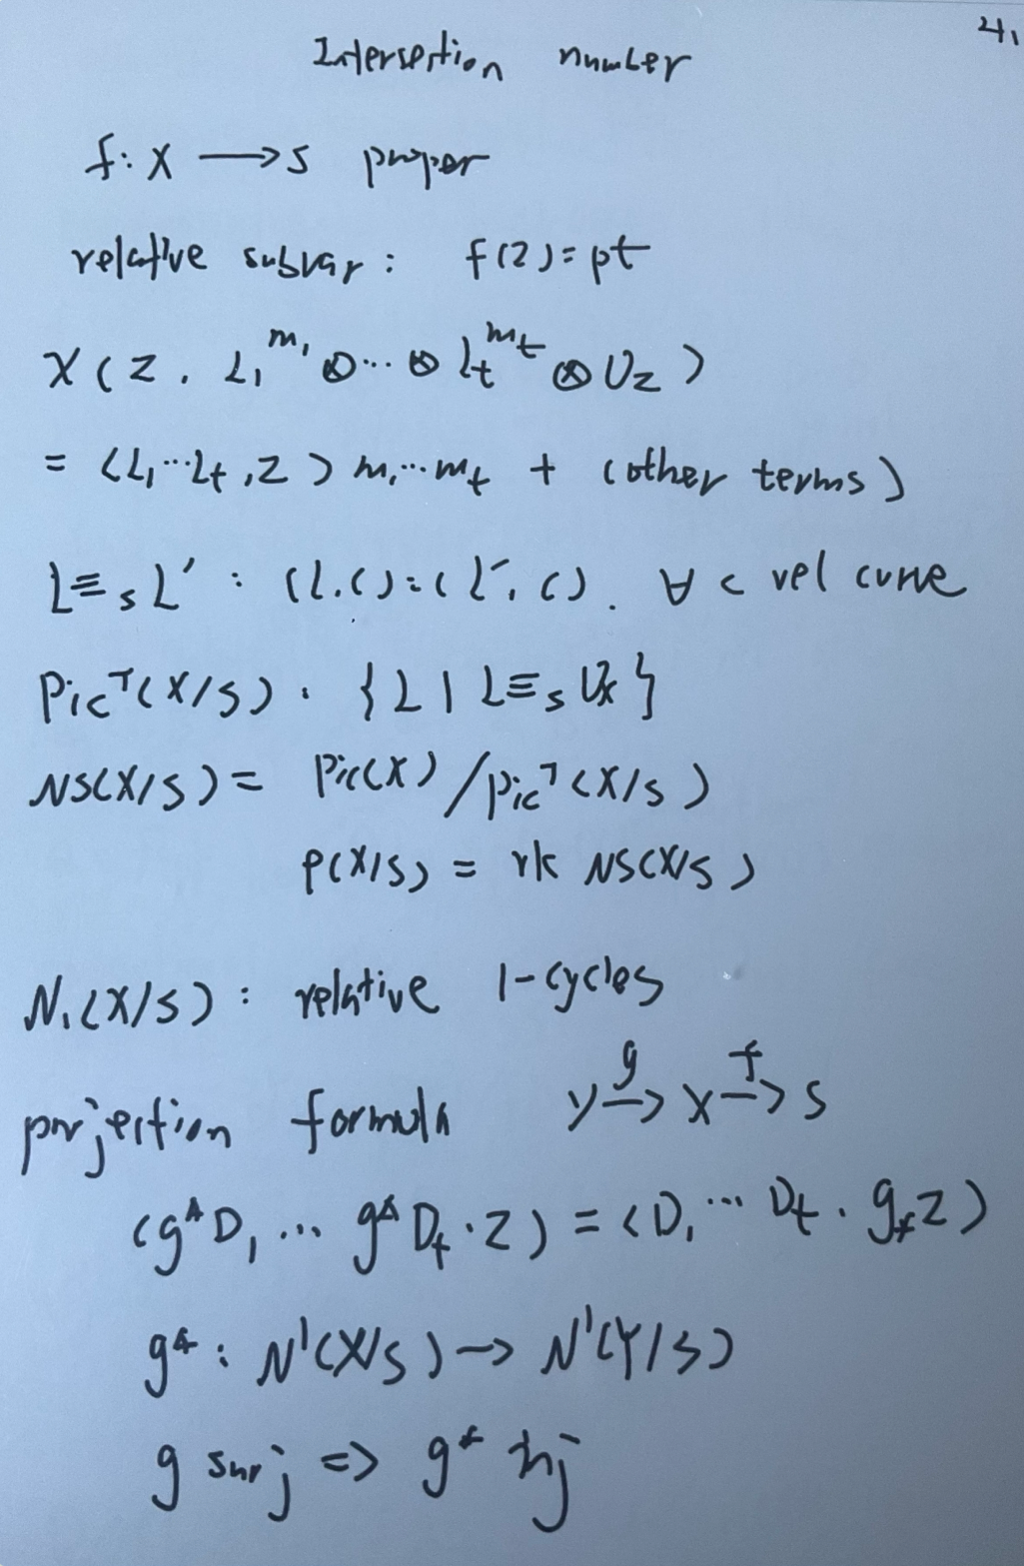 4,
Intersection number
f: X → S proper
relative subvar: f(Z) = pt
χ(Z, L₁^m₁ ⊗ ... ⊗ L_t^m_t ⊗ O_Z)
= (L₁ ... L_t, Z) m₁ ... m_t + (other terms)
L ≡_S L' : (L.C) = (L'.C). ∀ C rel curve
Pic^τ(X/S) . {L | L ≡_S O_X}
NS(X/S) = Pic(X) / Pic^τ(X/S)
ρ(X/S) = rk NS(X/S)
N₁(X/S) : relative 1-cycles
projection formula Y →^g X →^f S
(g*D₁ ... g*D_t . Z) = (D₁ ... D_t . g_*Z)
g* : N¹(X/S) → N¹(Y/S)
g surj => g* inj